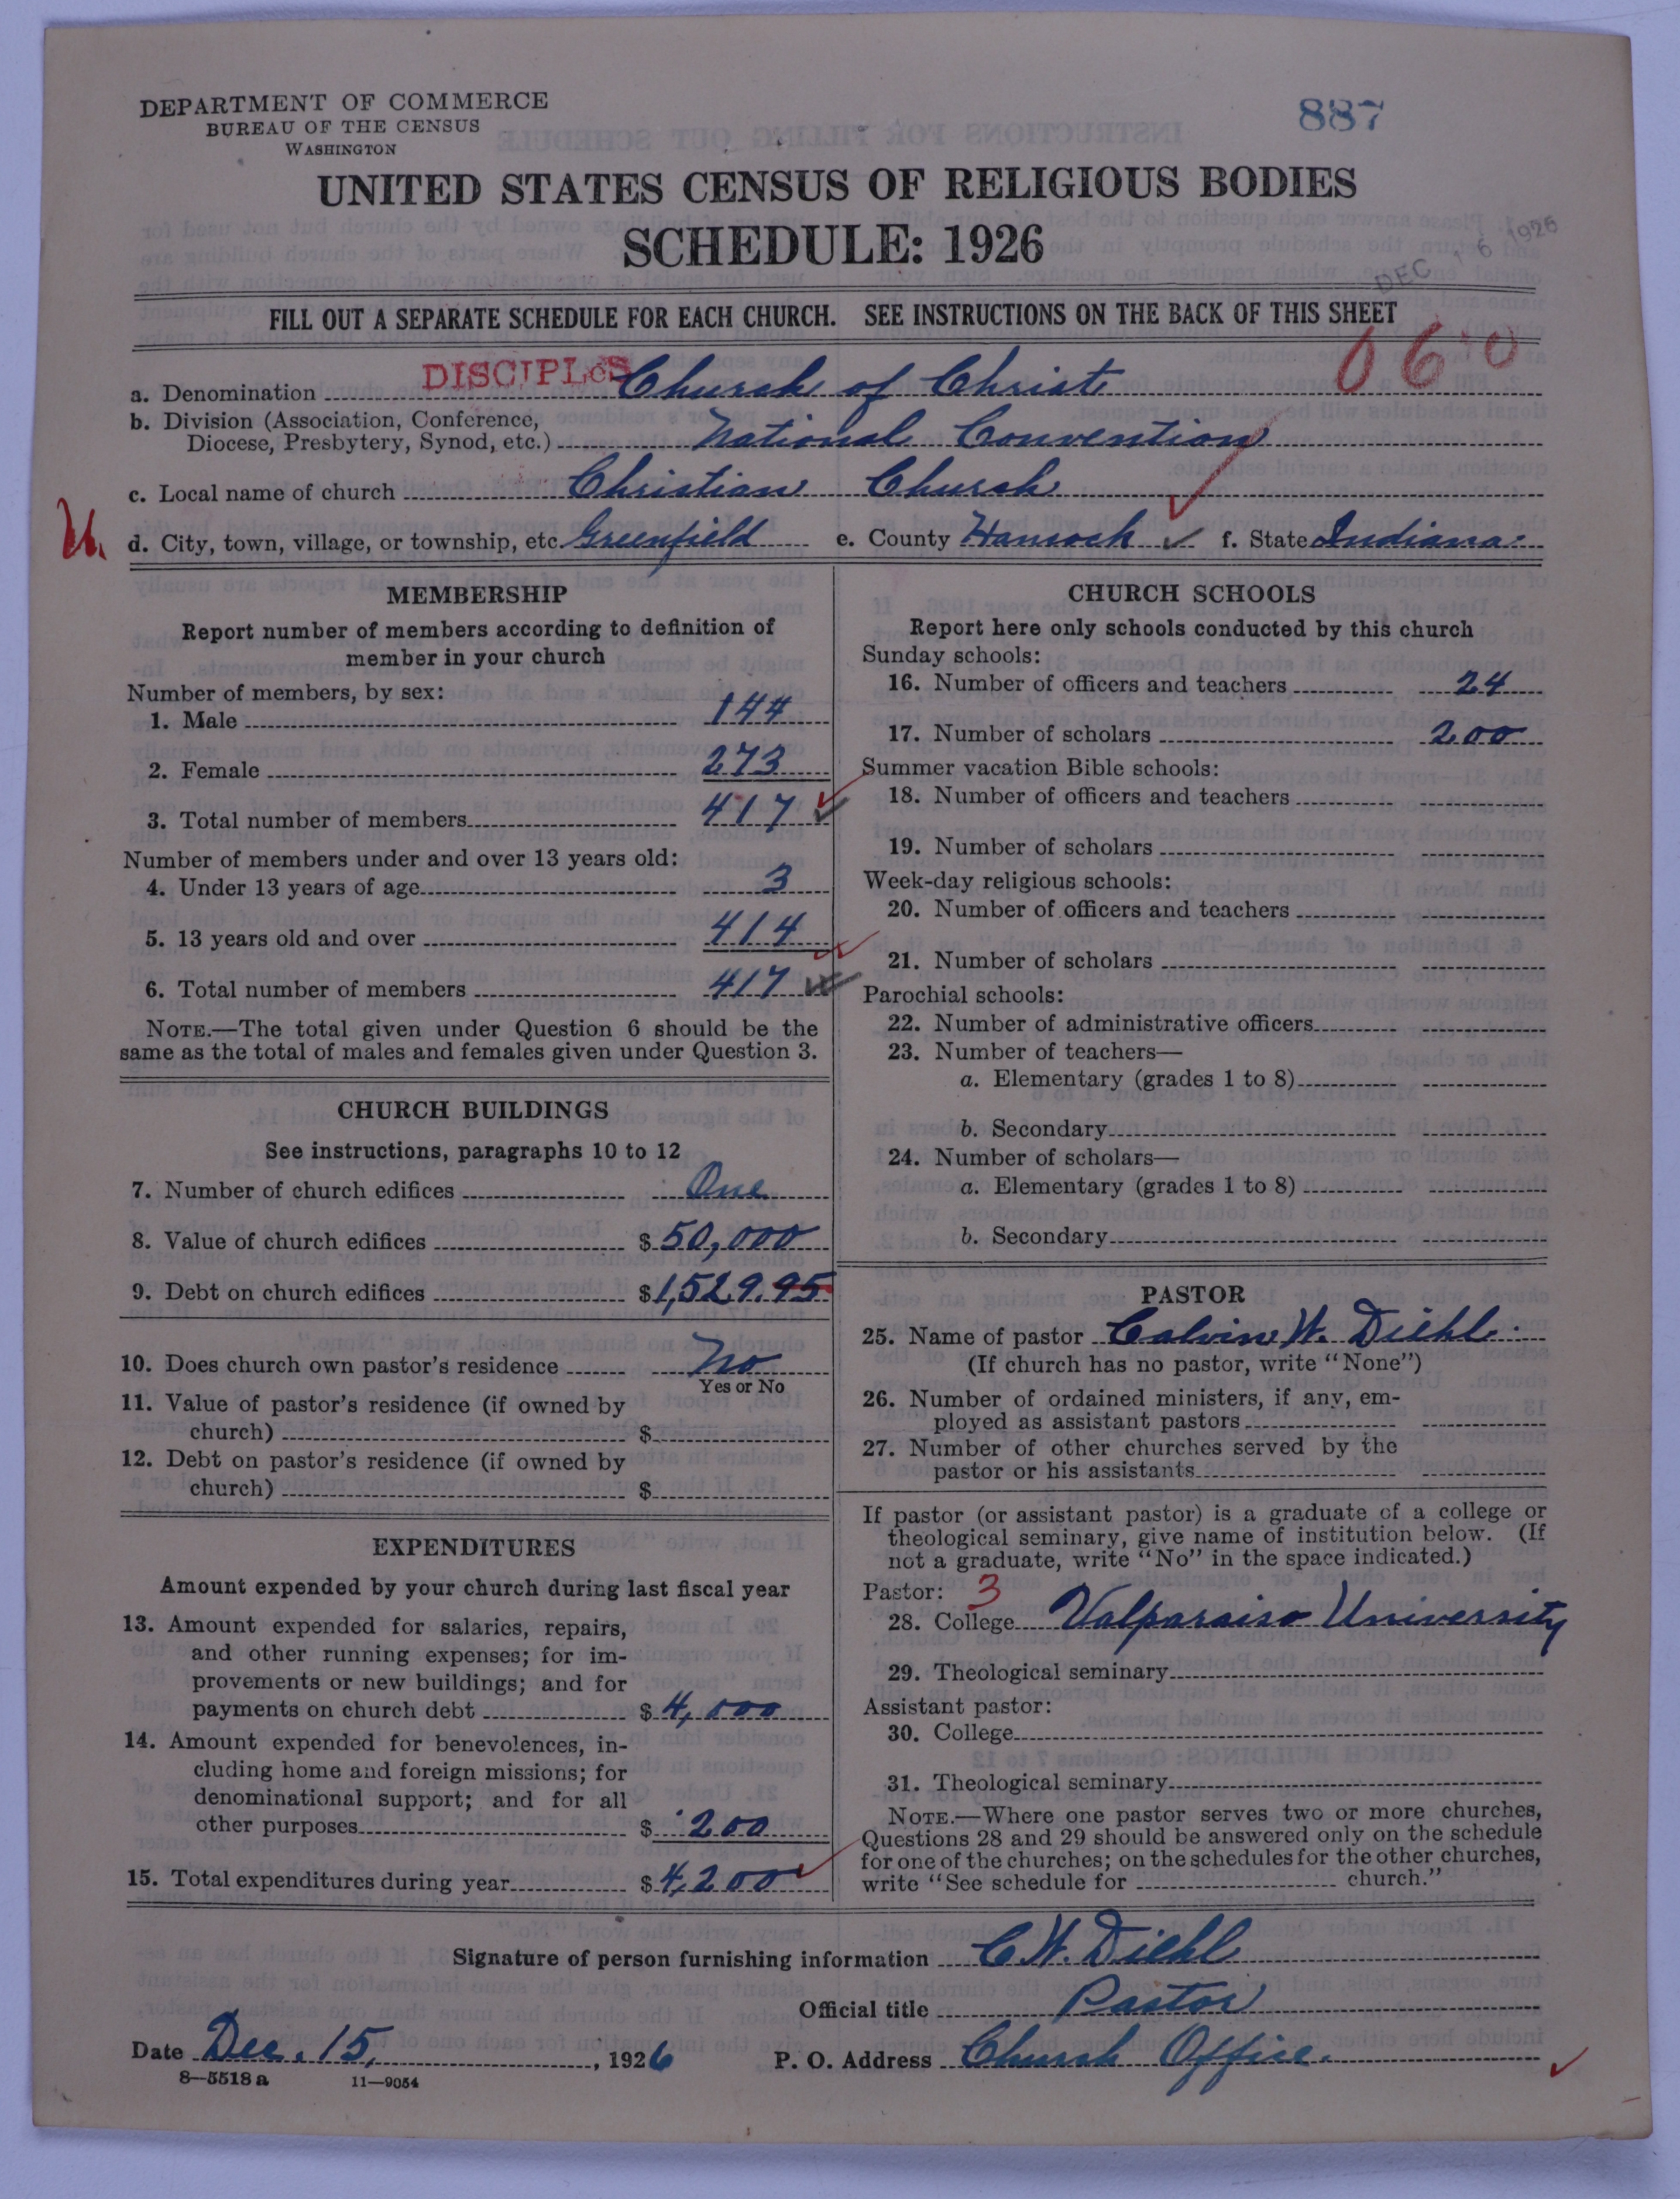 DEPARTMENT OF COMMERCE
BUREAU OF THE CENSUS
WASHINGTON
887
UNITED STATES CENSUS OF RELIGIOUS BODIES
SCHEDULE: 1926
DEC 16 1926
FILL OUT A SEPARATE SCHEDULE FOR EACH CHURCH. SEE INSTRUCTIONS ON THE BACK OF THIS SHEET
060
a. Denomination DISCIPLES Church of Christ
b. Division (Association, Conference,
Diocese, Presbytery, Synod, etc.) National Convention
c. Local name of church Christian Church
U. d. City, town, village, or township, etc. Greenfield e. County Hancock f. State Indiana
MEMBERSHIP
Report number of members according to definition of
member in your church
Number of members, by sex:
1. Male 144
2. Female 273
3. Total number of members 417
Number of members under and over 13 years old:
4. Under 13 years of age 3
5. 13 years old and over 414
6. Total number of members 417
NOTE.—The total given under Question 6 should be the
same as the total of males and females given under Question 3.
CHURCH BUILDINGS
See instructions, paragraphs 10 to 12
7. Number of church edifices One
8. Value of church edifices $ 50,000
9. Debt on church edifices $ 1,529.95
10. Does church own pastor's residence No
Yes or No
11. Value of pastor's residence (if owned by
church) $
12. Debt on pastor's residence (if owned by
church) $
EXPENDITURES
Amount expended by your church during last fiscal year
13. Amount expended for salaries, repairs,
and other running expenses; for im-
provements or new buildings; and for
payments on church debt $ 4,000
14. Amount expended for benevolences, in-
cluding home and foreign missions; for
denominational support; and for all
other purposes $ 200
15. Total expenditures during year $ 4,200
CHURCH SCHOOLS
Report here only schools conducted by this church
Sunday schools:
16. Number of officers and teachers 24
17. Number of scholars 200
Summer vacation Bible schools:
18. Number of officers and teachers
19. Number of scholars
Week-day religious schools:
20. Number of officers and teachers
21. Number of scholars
Parochial schools:
22. Number of administrative officers
23. Number of teachers—
a. Elementary (grades 1 to 8)
b. Secondary
24. Number of scholars—
a. Elementary (grades 1 to 8)
b. Secondary
PASTOR
25. Name of pastor Calvin W. Diehl
(If church has no pastor, write "None")
26. Number of ordained ministers, if any, em-
ployed as assistant pastors
27. Number of other churches served by the
pastor or his assistants
If pastor (or assistant pastor) is a graduate of a college or
theological seminary, give name of institution below. (If
not a graduate, write "No" in the space indicated.)
Pastor: 3
28. College Valparaiso University
29. Theological seminary
Assistant pastor:
30. College
31. Theological seminary
NOTE.—Where one pastor serves two or more churches,
Questions 28 and 29 should be answered only on the schedule
for one of the churches; on the schedules for the other churches,
write "See schedule for church."
Signature of person furnishing information C. W. Diehl
Official title Pastor
Date Dec. 15, 1926 P. O. Address Church Office.
8—5518 a 11—9054